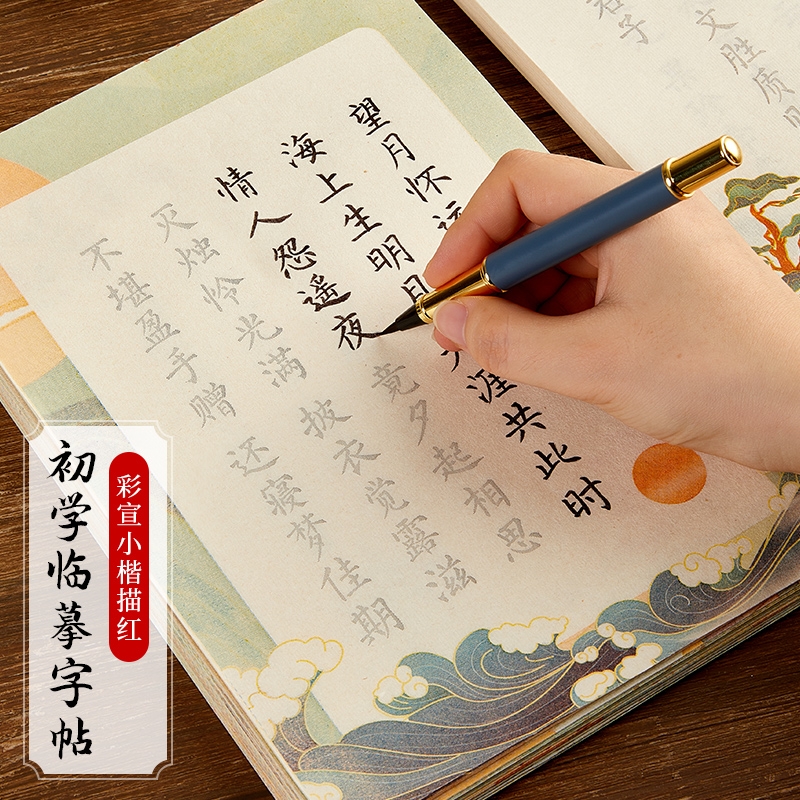 文胜质
子
望月怀远
海上生明月 涯共此时
情人怨遥夜 竟夕起相思
灭烛怜光满 披衣觉露滋
不堪盈手赠 还寝梦佳期
彩宣小楷描红
初学临摹字帖